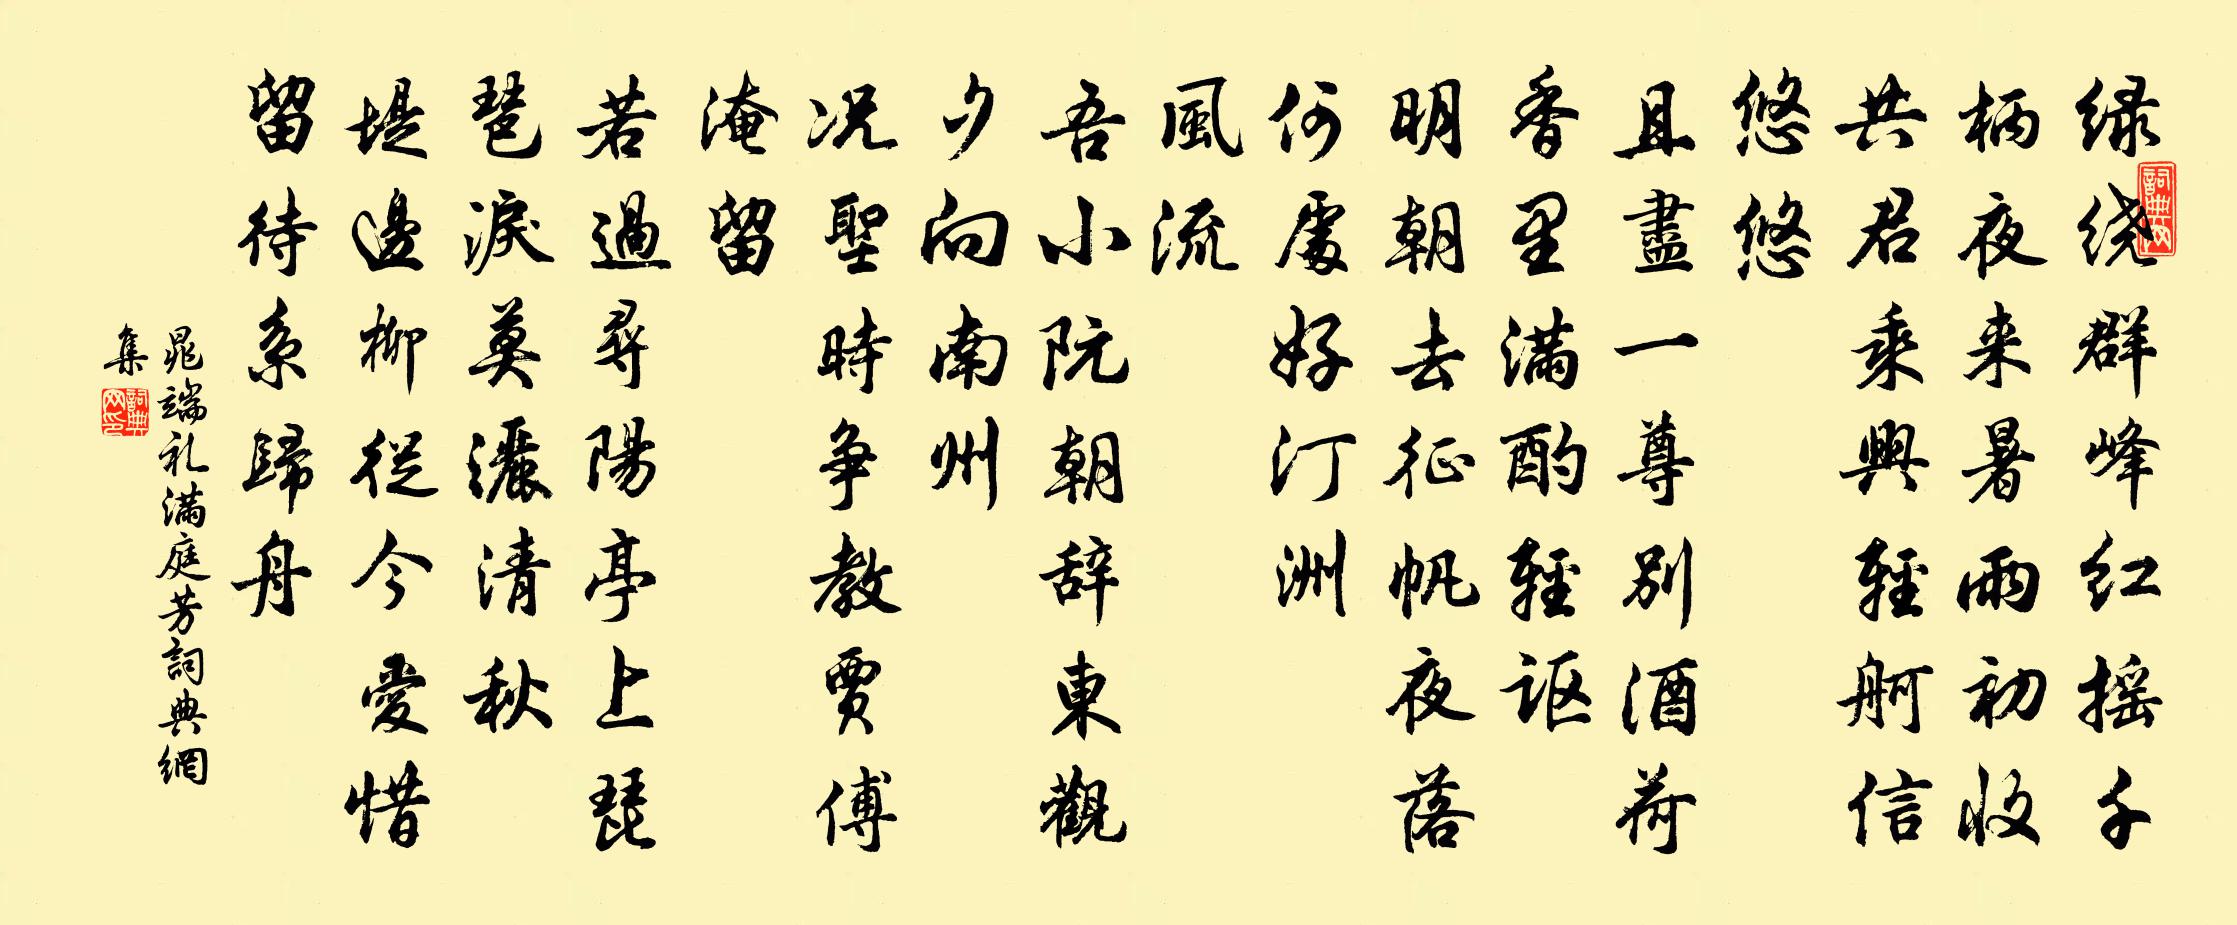 绿绕群峰红摇千
柄夜来暑雨初收
共君乘興輕舸信
悠悠
且盡一尊别酒荷
香里满酌輕讴
明朝去征帆夜落
何處好汀洲
風流
吾小阮朝辞東觀
夕向南州
况聖時争教贾傅
淹留
若過尋陽亭上琵
琶淚莫灑清秋
堤邊柳從今愛惜
留待系歸舟
晁端礼满庭芳詞典網
集
詞典网
詞典网印